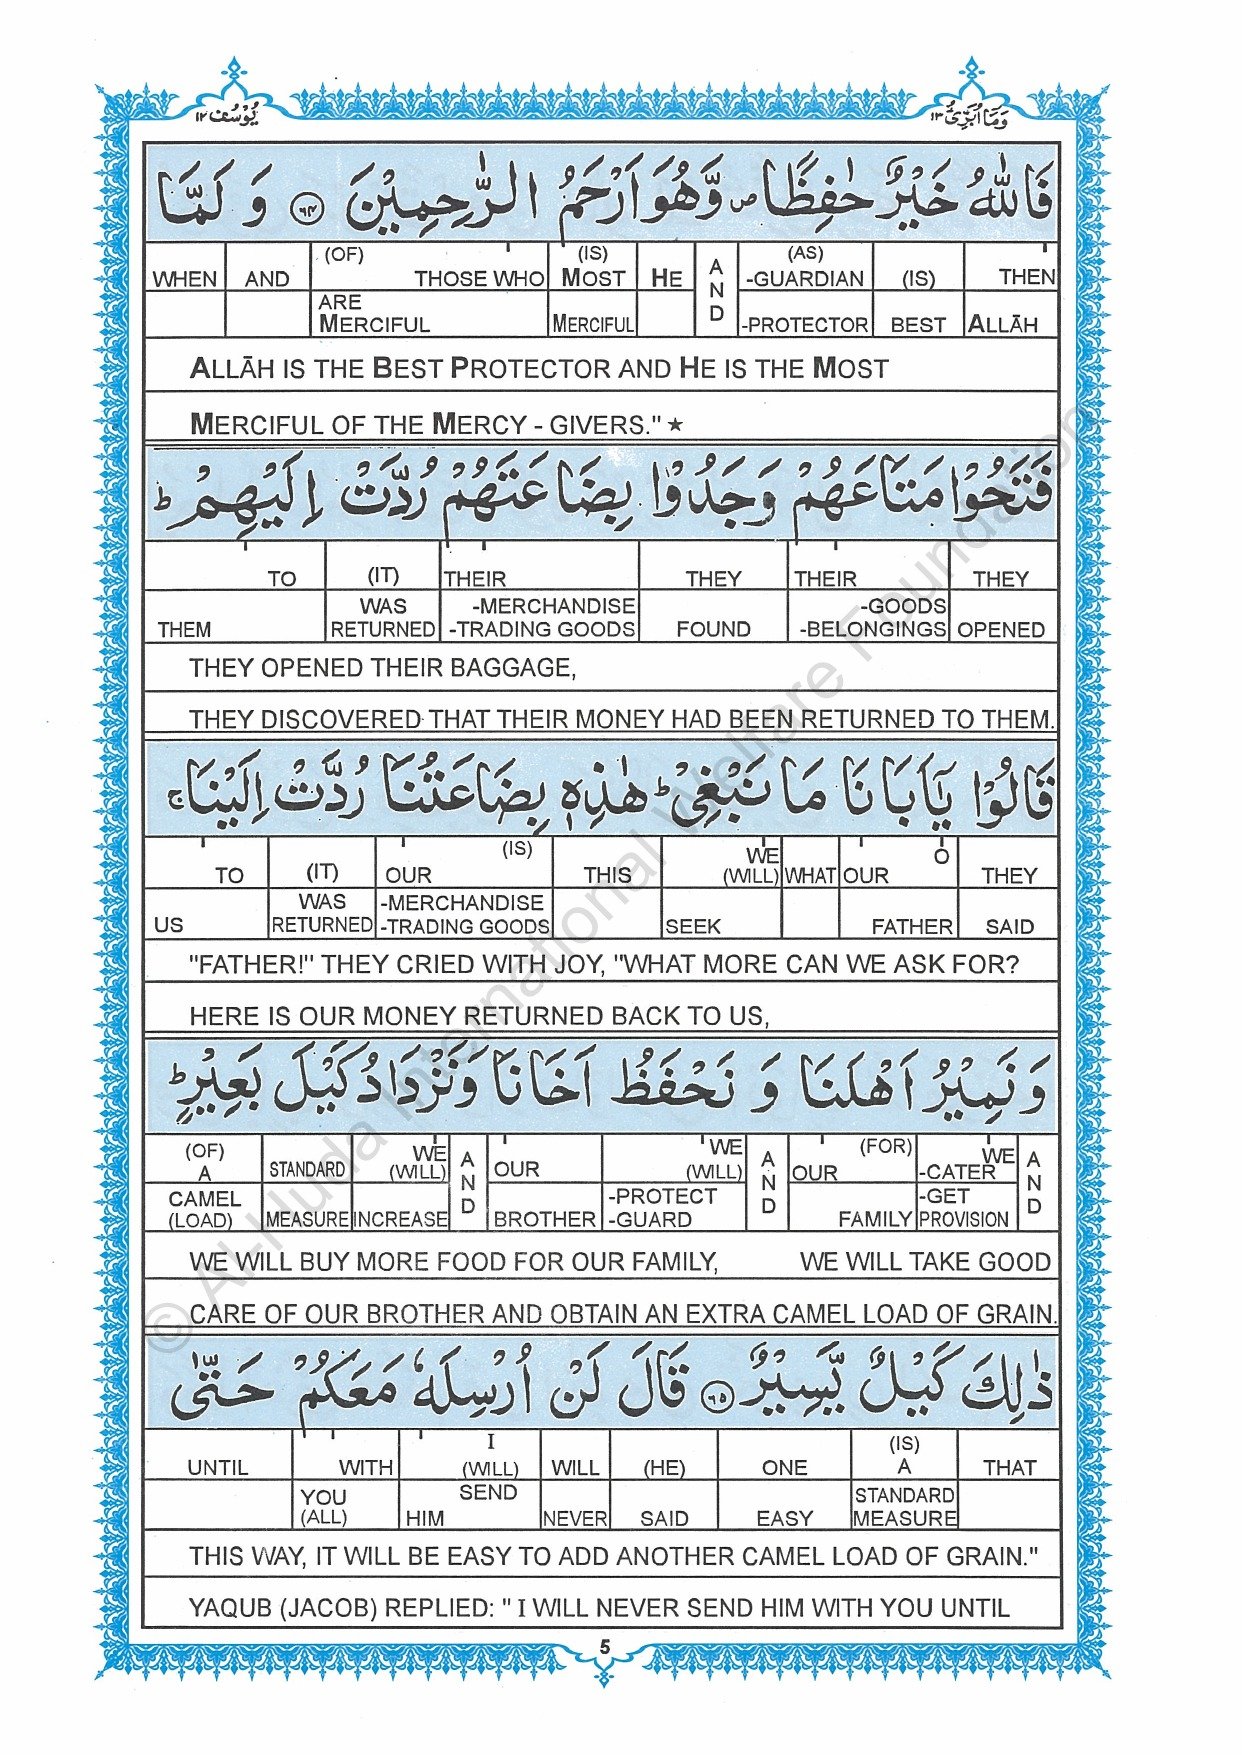 وَمَآ اُبَرِّئُ ١٣ يُوْسُف ١٢
فَاللّٰهُ خَيْرٌ حٰفِظًا ص وَّهُوَ اَرْحَمُ الرّٰحِمِيْنَ ٦٤ وَ لَمَّا
(OF) (IS) (AS)
WHEN AND THOSE WHO MOST HE AND -GUARDIAN (IS) THEN
ARE MERCIFUL MERCIFUL -PROTECTOR BEST ALLĀH
ALLĀH IS THE BEST PROTECTOR AND HE IS THE MOST
MERCIFUL OF THE MERCY - GIVERS." ★
فَتَحُوْا مَتَاعَهُمْ وَجَدُوْا بِضَاعَتَهُمْ رُدَّتْ اِلَيْهِمْ ط
TO (IT) THEIR THEY THEIR THEY
WAS -MERCHANDISE -GOODS
THEM RETURNED -TRADING GOODS FOUND -BELONGINGS OPENED
THEY OPENED THEIR BAGGAGE,
THEY DISCOVERED THAT THEIR MONEY HAD BEEN RETURNED TO THEM.
قَالُوْا يٰٓاَبَانَا مَا نَبْغِيْ ط هٰذِهٖ بِضَاعَتُنَا رُدَّتْ اِلَيْنَا ج
(IS) WE O
TO (IT) OUR THIS (WILL) WHAT OUR THEY
WAS -MERCHANDISE
US RETURNED -TRADING GOODS SEEK FATHER SAID
"FATHER!" THEY CRIED WITH JOY, "WHAT MORE CAN WE ASK FOR?
HERE IS OUR MONEY RETURNED BACK TO US,
وَ نَمِيْرُ اَهْلَنَا وَ نَحْفَظُ اَخَانَا وَنَزْدَادُ كَيْلَ بَعِيْرٍ ط
(OF) WE WE (FOR) WE
A STANDARD (WILL) AND OUR (WILL) AND OUR -CATER AND
CAMEL -PROTECT -GET
(LOAD) MEASURE INCREASE BROTHER -GUARD FAMILY PROVISION
WE WILL BUY MORE FOOD FOR OUR FAMILY, WE WILL TAKE GOOD
CARE OF OUR BROTHER AND OBTAIN AN EXTRA CAMEL LOAD OF GRAIN.
ذٰلِكَ كَيْلٌ يَّسِيْرٌ ٦٥ قَالَ لَنْ اُرْسِلَهٗ مَعَكُمْ حَتّٰى
I (IS)
UNTIL WITH (WILL) WILL (HE) ONE A THAT
YOU SEND STANDARD
(ALL) HIM NEVER SAID EASY MEASURE
THIS WAY, IT WILL BE EASY TO ADD ANOTHER CAMEL LOAD OF GRAIN."
YAQUB (JACOB) REPLIED: " I WILL NEVER SEND HIM WITH YOU UNTIL
5
© Al-Huda International Welfare Foundation